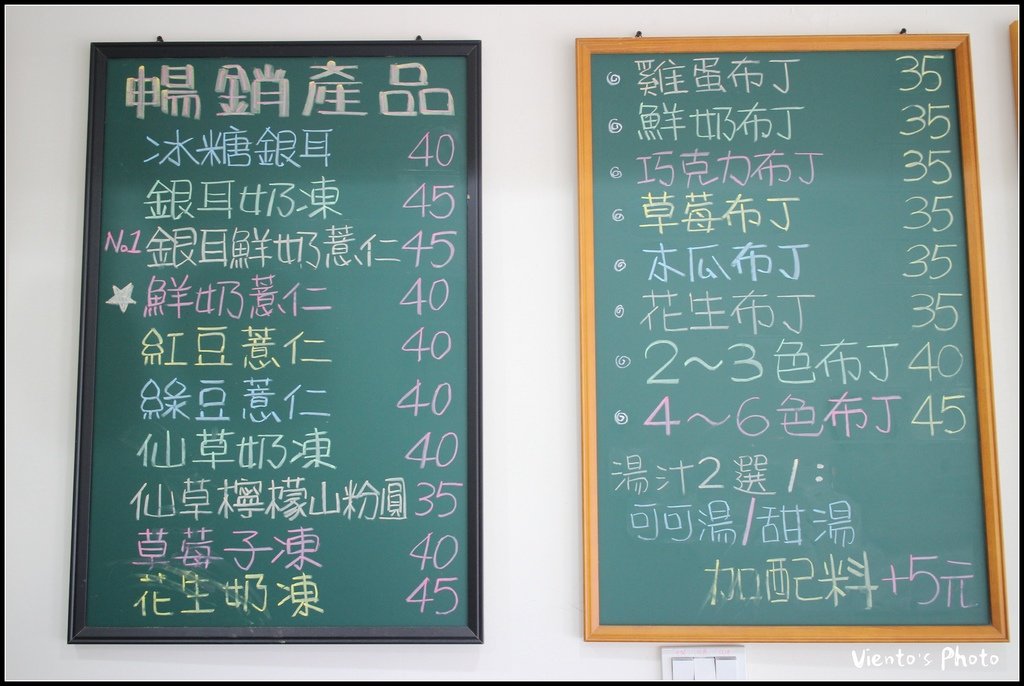 暢銷產品
冰糖銀耳 40
銀耳奶凍 45
No.1 銀耳鮮奶薏仁 45
鮮奶薏仁 40
紅豆薏仁 40
綠豆薏仁 40
仙草奶凍 40
仙草檸檬山粉圓 35
草莓子凍 40
花生奶凍 45
雞蛋布丁 35
鮮奶布丁 35
巧克力布丁 35
草莓布丁 35
木瓜布丁 35
花生布丁 35
2～3色布丁 40
4～6色布丁 45
湯汁2選1:
可可湯/甜湯
加配料+5元
Viento's Photo